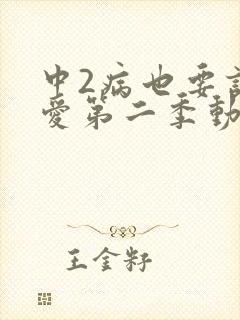 中2病也要
愛第二季動
王金籽